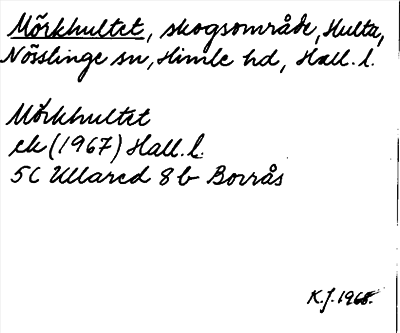 Mörkhultet, skogsområde, Hulta,
Nösslinge sn, Himle hd, Hall. l.
Mörkhultet
ek (1967) Hall. l.
5C Ullared 8b Bovrås
K.J. 1968.